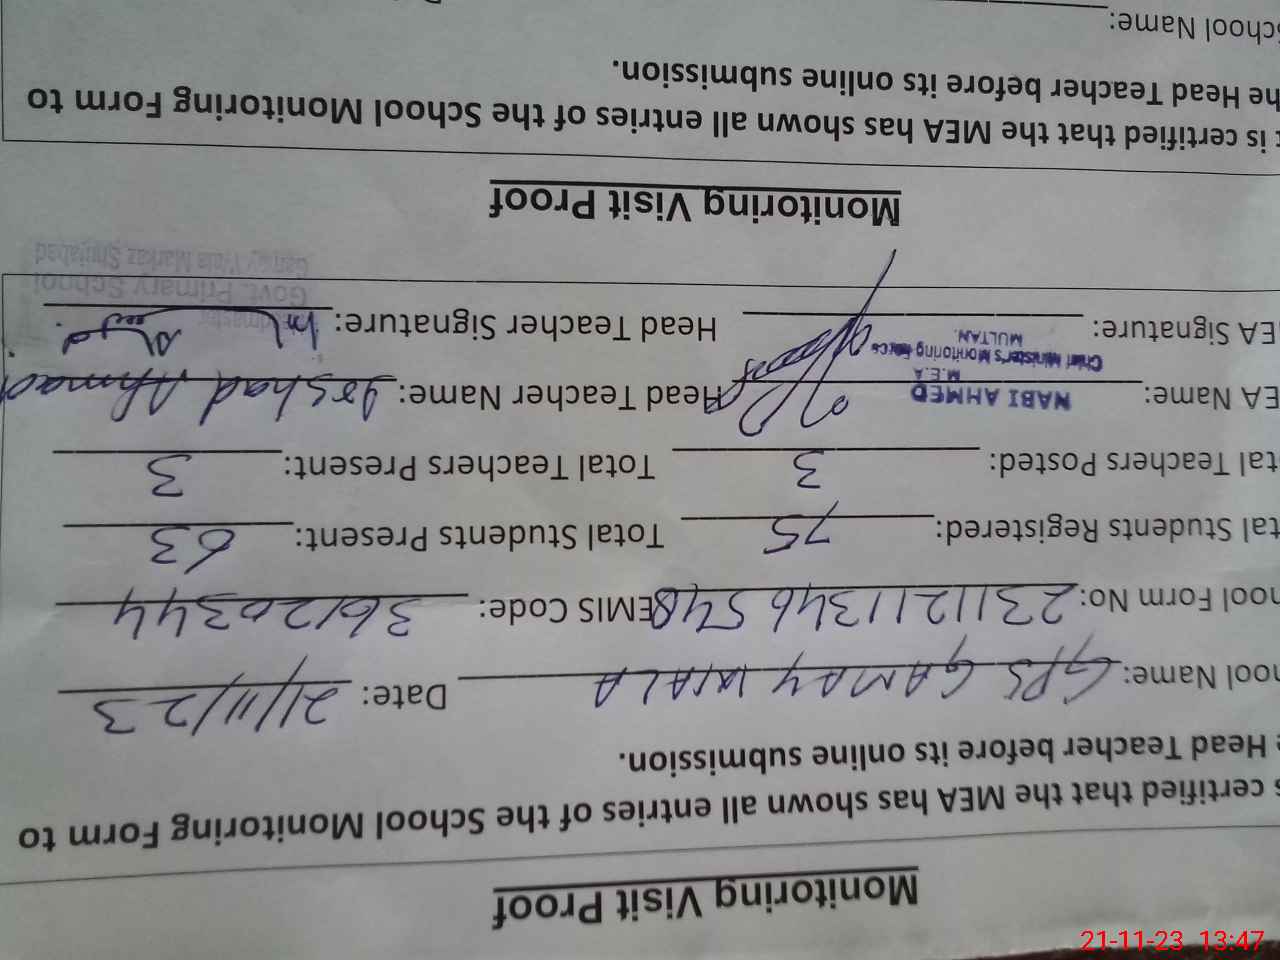 Monitoring Visit Proof
certified that the MEA has shown all entries of the School Monitoring Form to
Head Teacher before its online submission.
hool Name: GPS GAMAY WALA Date: 21/11/23
hool Form No: 231121134654 EMIS Code: 36120344
tal Students Registered: 75 Total Students Present: 63
tal Teachers Posted: 3 Total Teachers Present: 3
EA Name: NABI AHMED Head Teacher Name: Irshad Ahmad
M.E.A
Chief Minister's Monitoring Force
MULTAN.
EA Signature: Head Teacher Signature:
Govt. Primary School
Gamay Wala Markaz Shujabad
Monitoring Visit Proof
is certified that the MEA has shown all entries of the School Monitoring Form to
he Head Teacher before its online submission.
School Name:
21-11-23 13:47